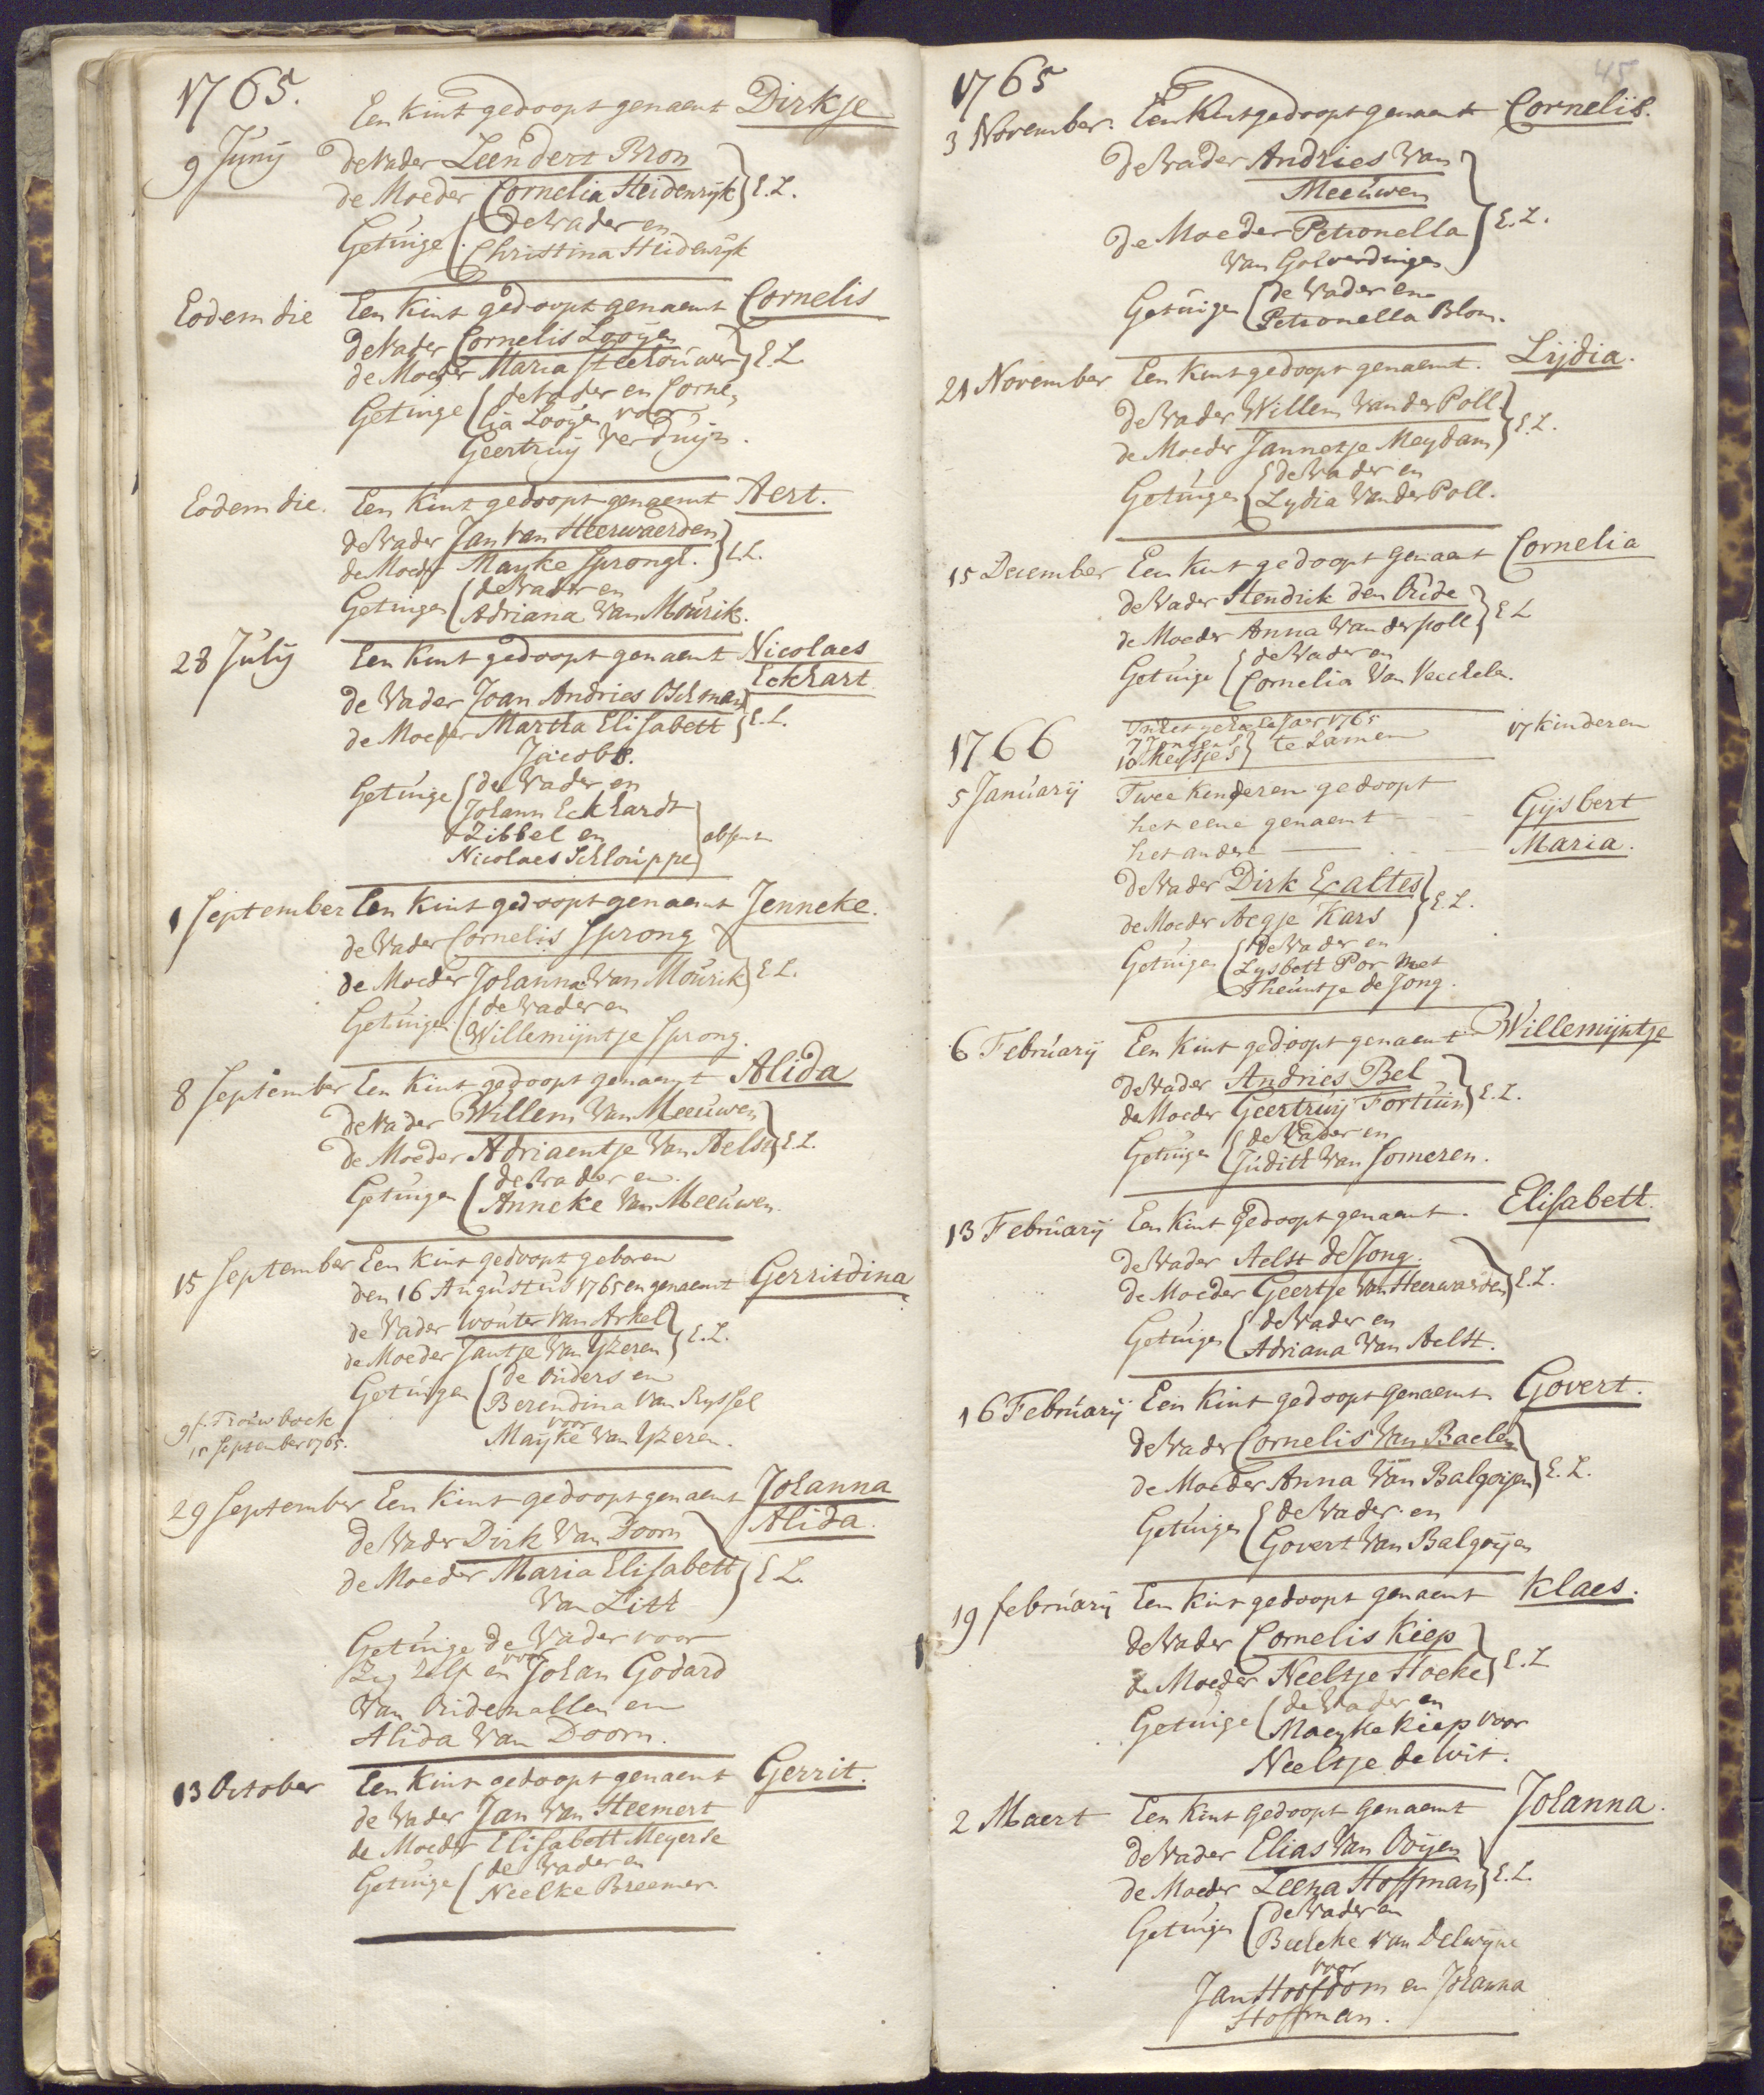 1765.
Een Kint gedoopt genaemt Dirkje
9 Junij de Vader Leendert Bron
de Moeder Cornelia Heidenrijk } E.L.
Getuige de Vader en
Christina Heidenrijk
Eodem die Een Kint gedoopt genaemt Cornelis
de Vader Cornelis Looijen
de Moeder Maria } E.L.
Getuige de Vader en Corne,
lia Looijen voor
Geertruij Verduijn.
Eodem die. Een Kint gedoopt genaemt Aert.
de Vader Jan Van Heerwaerden
de Moeder Mayke Sprongl. } E.L.
Getuigen de Vader en
Adriana Van Mourik.
28 Julij Een Kint gedoopt genaemt Nicolaes
Eckhart
de Vader Joan Andries
de Moeder Martha Elisabeth } E.L.
Jacobs.
Getuige de Vader en
Johann Eckhardt
Zibbel en
Nicolaes Schlouppe } absent
1 September Een Kint gedoopt genaemt Jenneke.
de Vader Cornelis Sprong
de Moeder Johanna Van Mourik } E.L.
Getuigen de Vader en
Willemijntje Sprong.
8 September Een Kint gedoopt genaemt Alida
de Vader Willem Van Meeuwen
de Moeder Adriaentje Van Aelst } E.L.
Getuigen de Vader en
Anneke Van Meeuwen.
15 September Een Kint gedoopt geboren
den 16 Augustus 1765 en genaemt Gerritdina
de Vader Wouter Van Arkel
de Moeder Jantje Van Yzeren } E.L.
Getuigen de Ouders en
Berendina Van Ryssel
voor
Mayke Van Yzeren.
Trouwboek
15 September 1765.
29 September Een Kint gedoopt genaemt Johanna
Alida.
de Vader Dirk Van Doorn
de Moeder Maria Elisabeth } E.L.
Van Lith
Getuige de Vader voor
Zig zelf en voor Johan Godard
Van en
Alida Van Doorn.
13 October Een Kint gedoopt genaemt Gerrit.
de Vader Jan Van Heemert
de Moeder Elisabeth Meyerse
Getuige de Vader en
Neelke Breemer.
45
1765
3 November. Een Kint gedoopt genaemt Cornelis.
de Vader Andries Van
Meeuwen
de Moeder Petronella } E.L.
Van Golverdingen
Getuigen de Vader en
Petronella Blom.
21 November Een Kint gedoopt genaemt. Lijdia.
de Vader Willem Van der Poll.
de Moeder Jannetje Meydam } E.L.
Getuigen de Vader en
Lydia Van der Poll.
15 December Een Kint gedoopt genaemt Cornelia
de Vader Hendrik den Oude
de Moeder Anna Van der poll } E L
Getuige de Vader en
Cornelia Van
Jaer 1765
7
10 Meysjes } te Samen 17 kinderen
1766
5 Januarij Twee kinderen gedoopt
het eene genaemt Gijsbert
het andere Maria.
de Vader Dirk
de Moeder Aegje Kars } E.L.
Getuigen de Vader en
Lysbeth Por met
Theuntje de Jong.
6 Februarij Een Kint gedoopt genaemt Willemijntje
de Vader Andries Bel
de Moeder Geertruij Fortuin } E.L.
Getuigen de Vader en
Judith Van Someren.
13 Februarij Een Kint Gedoopt genaemt. Elisabeth.
de Vader Aelst de Jong.
de Moeder Geertje Van Heerwaerden } E.L.
Getuigen de Vader en
Adriana Van Aelst.
16 Februarij Een Kint gedoopt genaemt Govert.
de Vader Cornelis Van Baelen
de Moeder Anna Van Balgoijen } E.L.
Getuigen de Vader en
Govert Van Balgoijen
19 februarij Een Kint gedoopt genaemt Klaes.
de Vader Cornelis Kiep
de Moeder Neeltje Hoeke } E.L
Getuige de Vader en
Maeyke Kiep voor
Neeltje de Wit.
2 Maert Een Kint gedoopt genaemt Johanna.
de Vader Elias Van Ooijen
de Moeder Leena Hoffman } E.L.
Getuigen de Vader en
Beeleke van Delwijne
voor
Jan Hoofdom en Johanna
Hoffman.